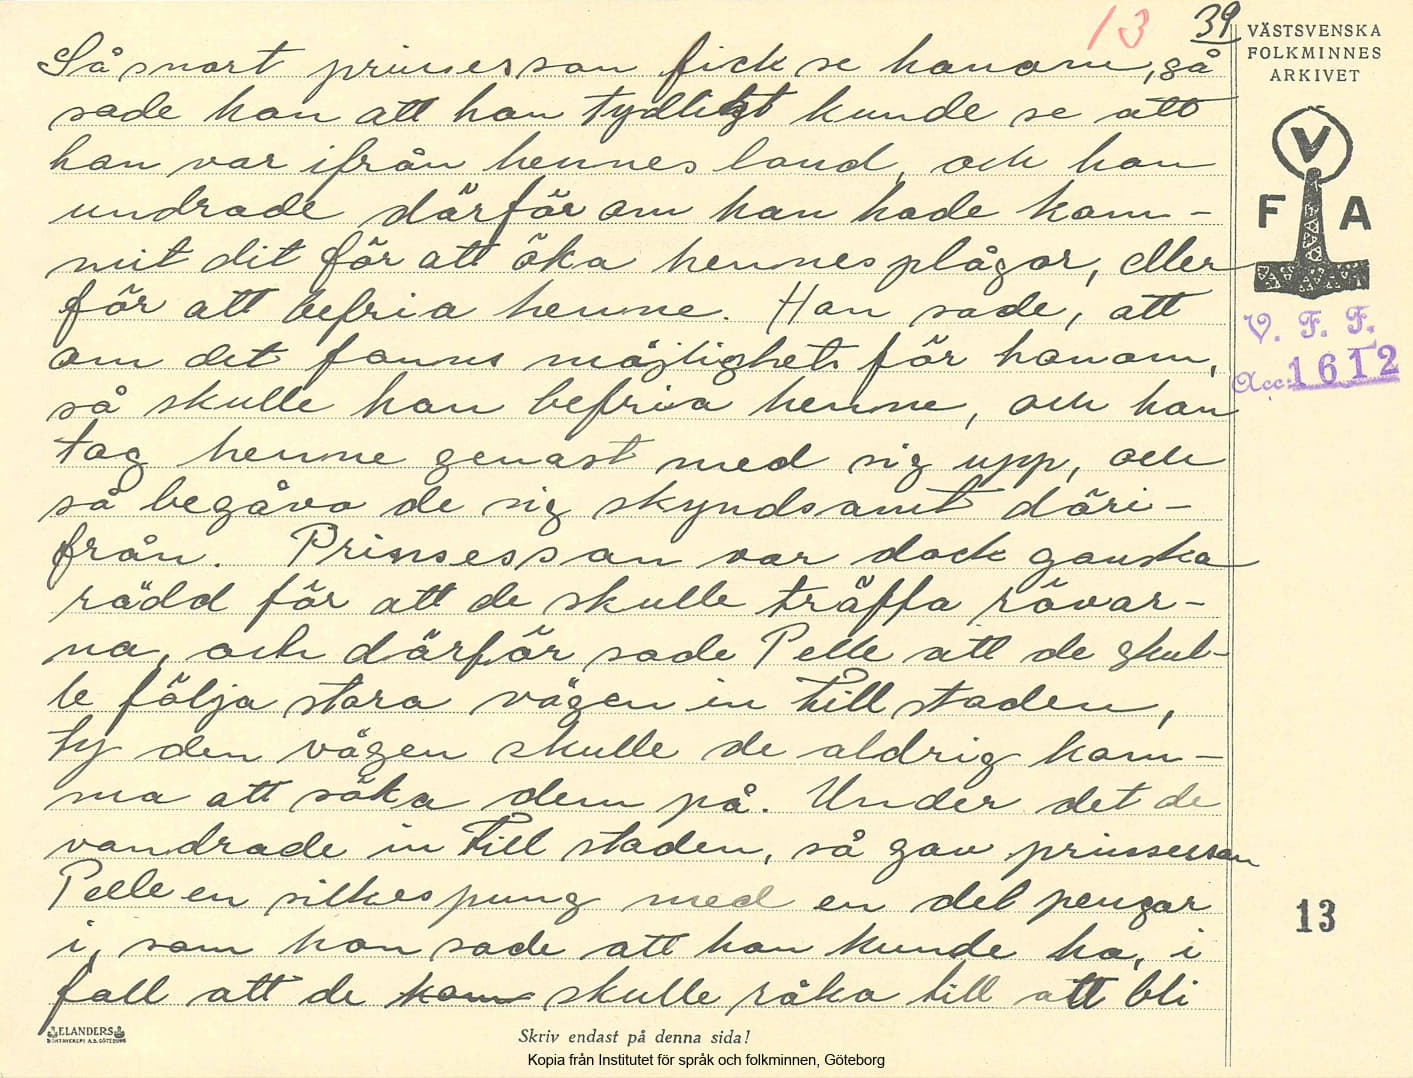 13
39
VÄSTSVENSKA
FOLKMINNES
ARKIVET
V
F A
V. F. F.
Acc: 1612
Så snart prinsessan fick se honom, så
sade hon att hon tydligt kunde se att
han var ifrån hennes land, och hon
undrade därför om han hade kom-
mit dit för att öka hennes plågor, eller
för att befria henne. Han sade, att
om det fanns möjlighet för honom,
så skulle han befria henne, och han
tog henne genast med sig upp, och
så begåvo de sig skyndsamt däri-
från. Prinsessan var dock ganska
rädd för att de skulle träffa rövar-
na, och därför sade Pelle att de skul-
le följa stora vägen in till staden,
ty den vägen skulle de aldrig kom-
ma att söka dem på. Under det de
vandrade in till staden, så gav prinsessan
Pelle en silkespung med en del pengar
i, som hon sade att han kunde ha, i
fall att de kom skulle råka till att bli
13
ELANDERS
BOKTRYCKERI A.B. GÖTEBORG
Skriv endast på denna sida!
Kopia från Institutet för språk och folkminnen, Göteborg